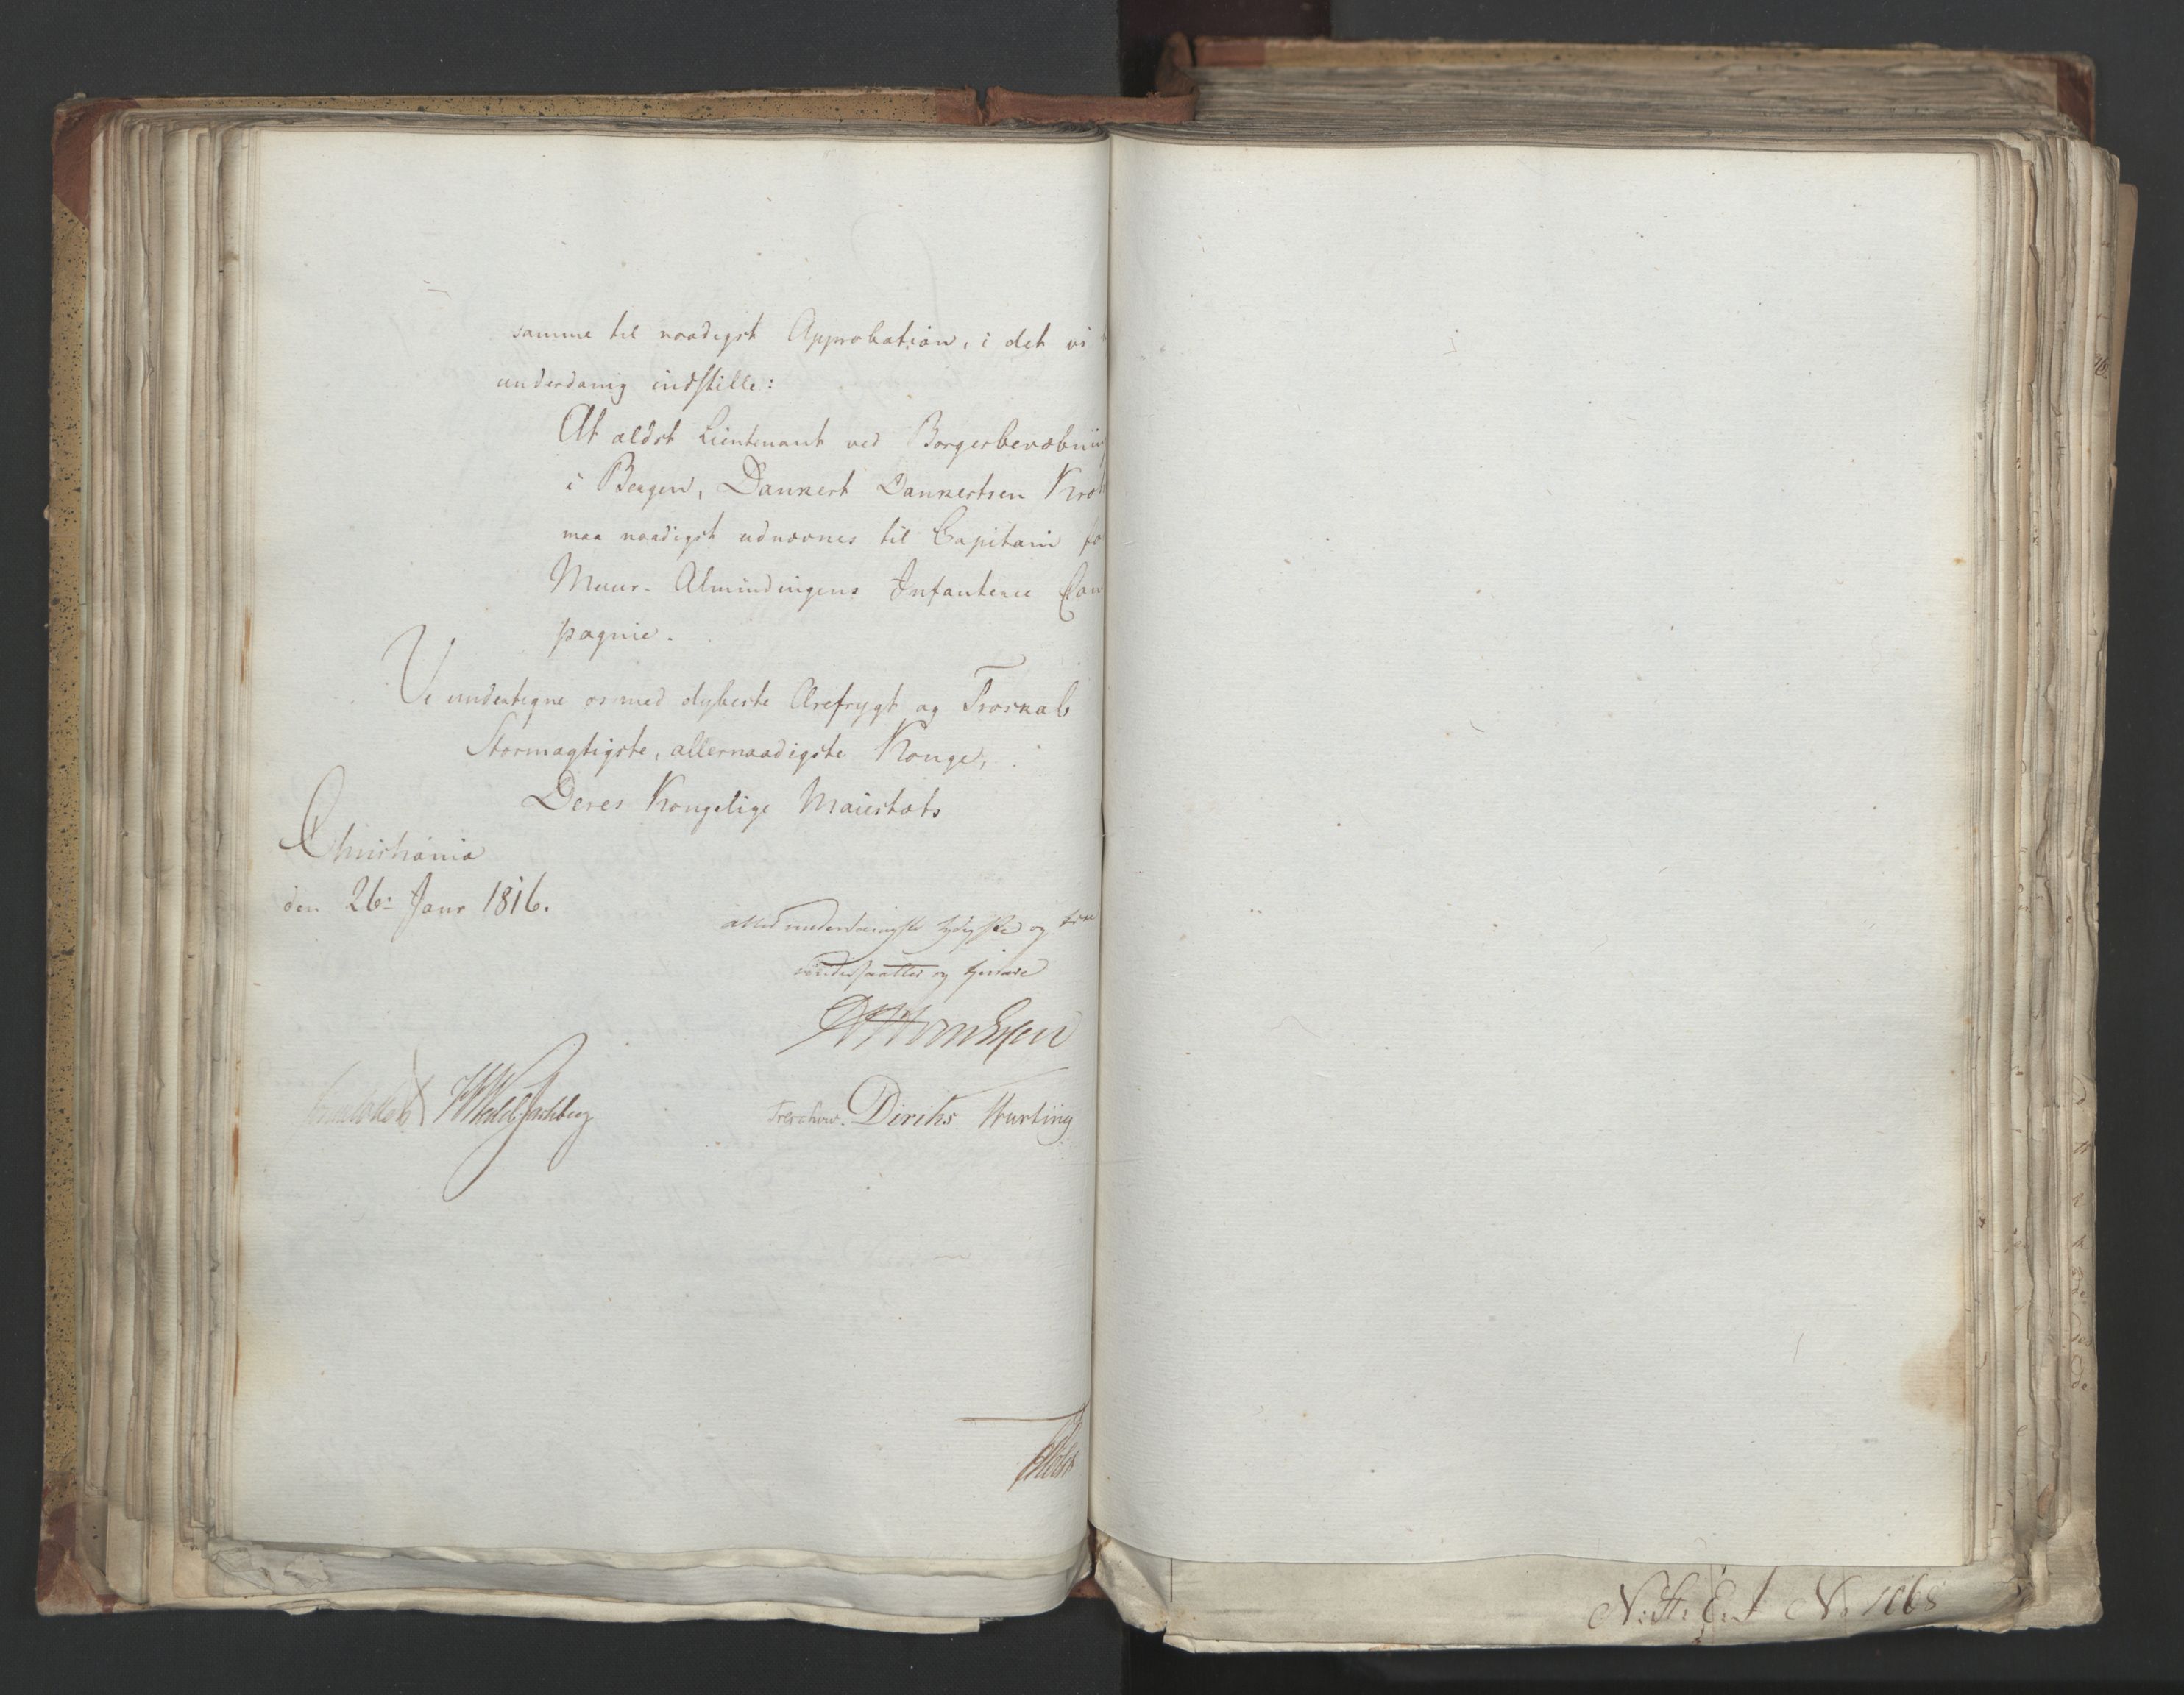 samme til naadigst Approbation, i det vi
underdanig indstille:
At ældst Lieutenant ved Borgerbevæbnin
i Bergen, Dankert Dankertsen Kro
maa naadigst udnævnes til Capitain fo
Muur-Almindingens Infanterie Com
pagnie.
Vi undertegne os med dybeste Ærefrygt og Troskab
Stormægtigste, allernaadigste Konge,
Deres Kongelige Maiestæts
Christiania
den 26: Janr 1816.
allerunderdanigste lydigste og troe
undersaatter og tjenere
Treschow. Diriks. Hurting
N: St: E: J No 1068